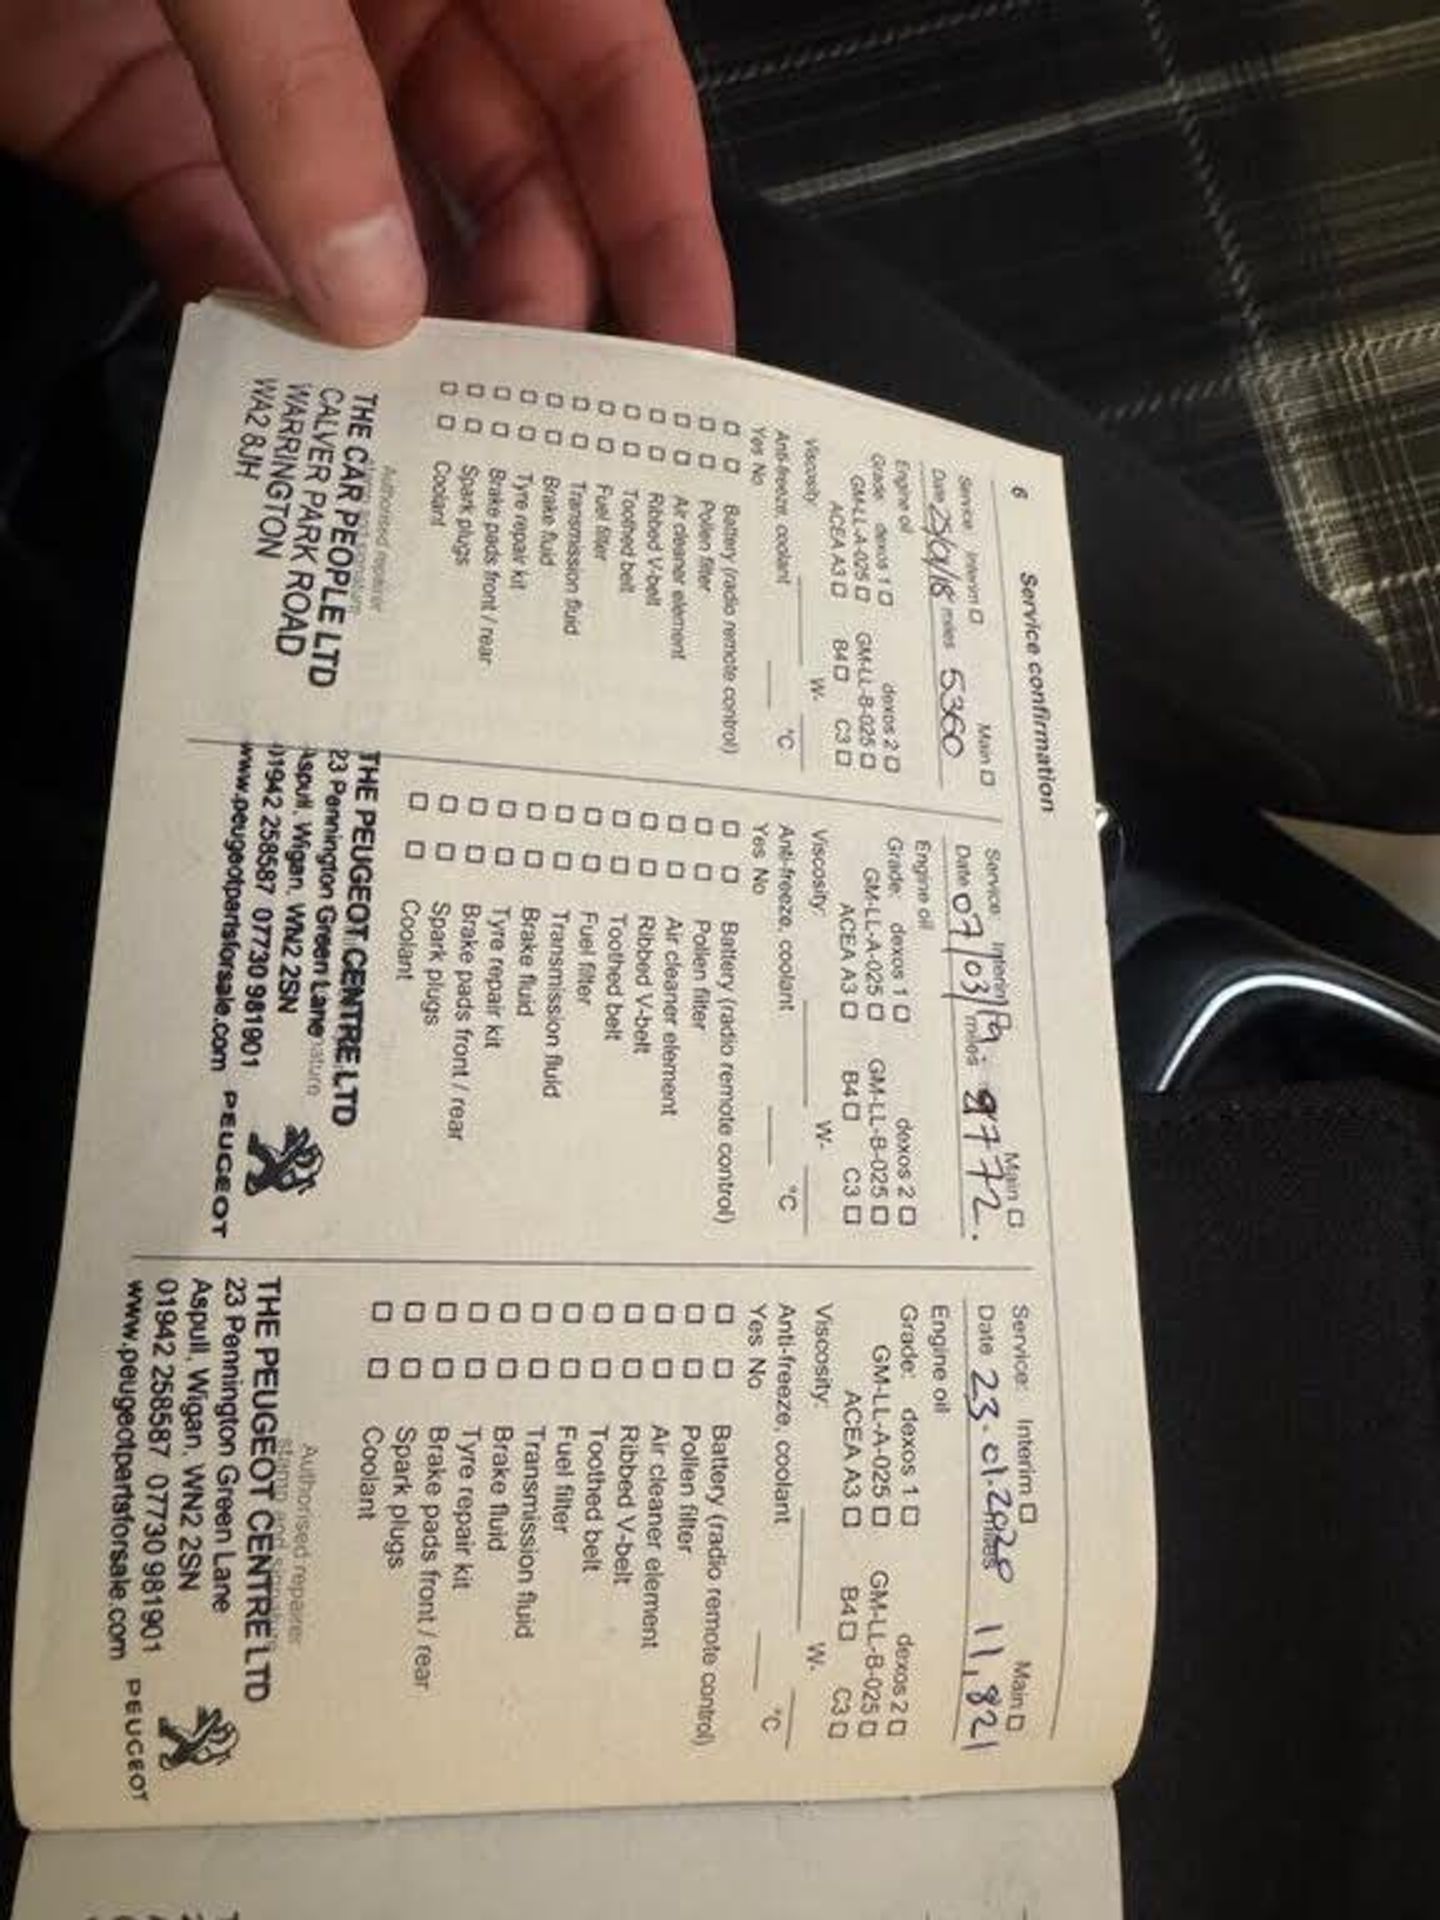 6 Service confirmation
Service: Interim □ Main □
Date 25/01/18 miles 5360
Engine oil
Grade: dexos 1 □ dexos 2 □
GM-LL-A-025 □ GM-LL-B-025 □
ACEA A3 □ B4 □ C3 □
Viscosity W-
Anti-freeze, coolant °C
Yes No
□ □ Battery (radio remote control)
□ □ Pollen filter
□ □ Air cleaner element
□ □ Ribbed V-belt
□ □ Toothed belt
□ □ Fuel filter
□ □ Transmission fluid
□ □ Brake fluid
□ □ Tyre repair kit
□ □ Brake pads front / rear
□ □ Spark plugs
□ □ Coolant
Authorised repairer
THE CAR PEOPLE LTD
CALVER PARK ROAD
WARRINGTON
WA2 8JH
Service: Interim Main □
Date 07/03/19. miles 9772.
Engine oil
Grade: dexos 1 □ dexos 2 □
GM-LL-A-025 □ GM-LL-B-025 □
ACEA A3 □ B4 □ C3 □
Viscosity: W-
Anti-freeze, coolant °C
Yes No
□ □ Battery (radio remote control)
□ □ Pollen filter
□ □ Air cleaner element
□ □ Ribbed V-belt
□ □ Toothed belt
□ □ Fuel filter
□ □ Transmission fluid
□ □ Brake fluid
□ □ Tyre repair kit
□ □ Brake pads front / rear
□ □ Spark plugs
□ □ Coolant
THE PEUGEOT CENTRE LTD
23 Pennington Green Lane
Aspull, Wigan, WN2 2SN
01942 258587 07730 981901
www.peugeotpartsforsale.com PEUGEOT
Service: Interim □ Main □
Date 23.01.2020 miles 11,821
Engine oil
Grade: dexos 1 □ dexos 2 □
GM-LL-A-025 □ GM-LL-B-025 □
ACEA A3 □ B4 □ C3 □
Viscosity: W-
Anti-freeze, coolant °C
Yes No
□ □ Battery (radio remote control)
□ □ Pollen filter
□ □ Air cleaner element
□ □ Ribbed V-belt
□ □ Toothed belt
□ □ Fuel filter
□ □ Transmission fluid
□ □ Brake fluid
□ □ Tyre repair kit
□ □ Brake pads front / rear
□ □ Spark plugs
□ □ Coolant
Authorised repairer
stamp and signature
THE PEUGEOT CENTRE LTD
23 Pennington Green Lane
Aspull, Wigan, WN2 2SN
01942 258587 07730 981901
www.peugeotpartsforsale.com PEUGEOT